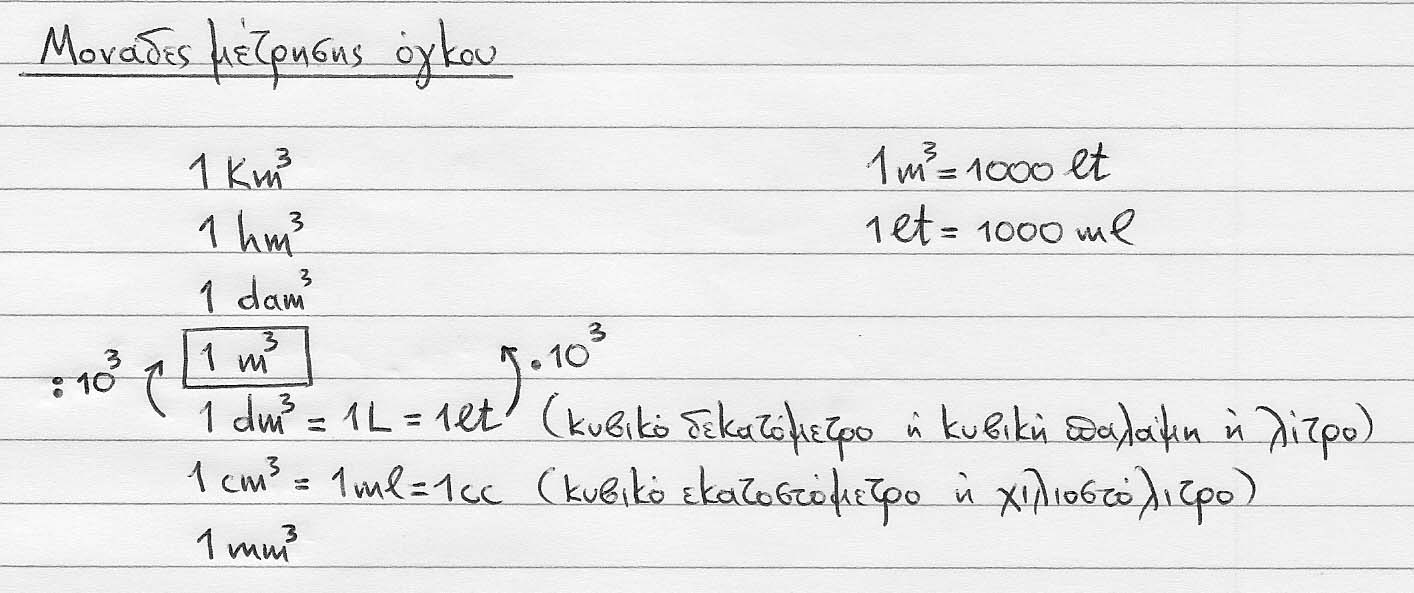 Μονάδες μέτρησης όγκου
1 Km³
1 hm³
1 dam³
1 m³
:10³
·10³
1 dm³ = 1L = 1lt (κυβικό δεκατόμετρο ή κυβική παλάμη ή λίτρο)
1 cm³ = 1ml = 1cc (κυβικό εκατοστόμετρο ή χιλιοστόλιτρο)
1 mm³
1 m³ = 1000 lt
1 lt = 1000 ml